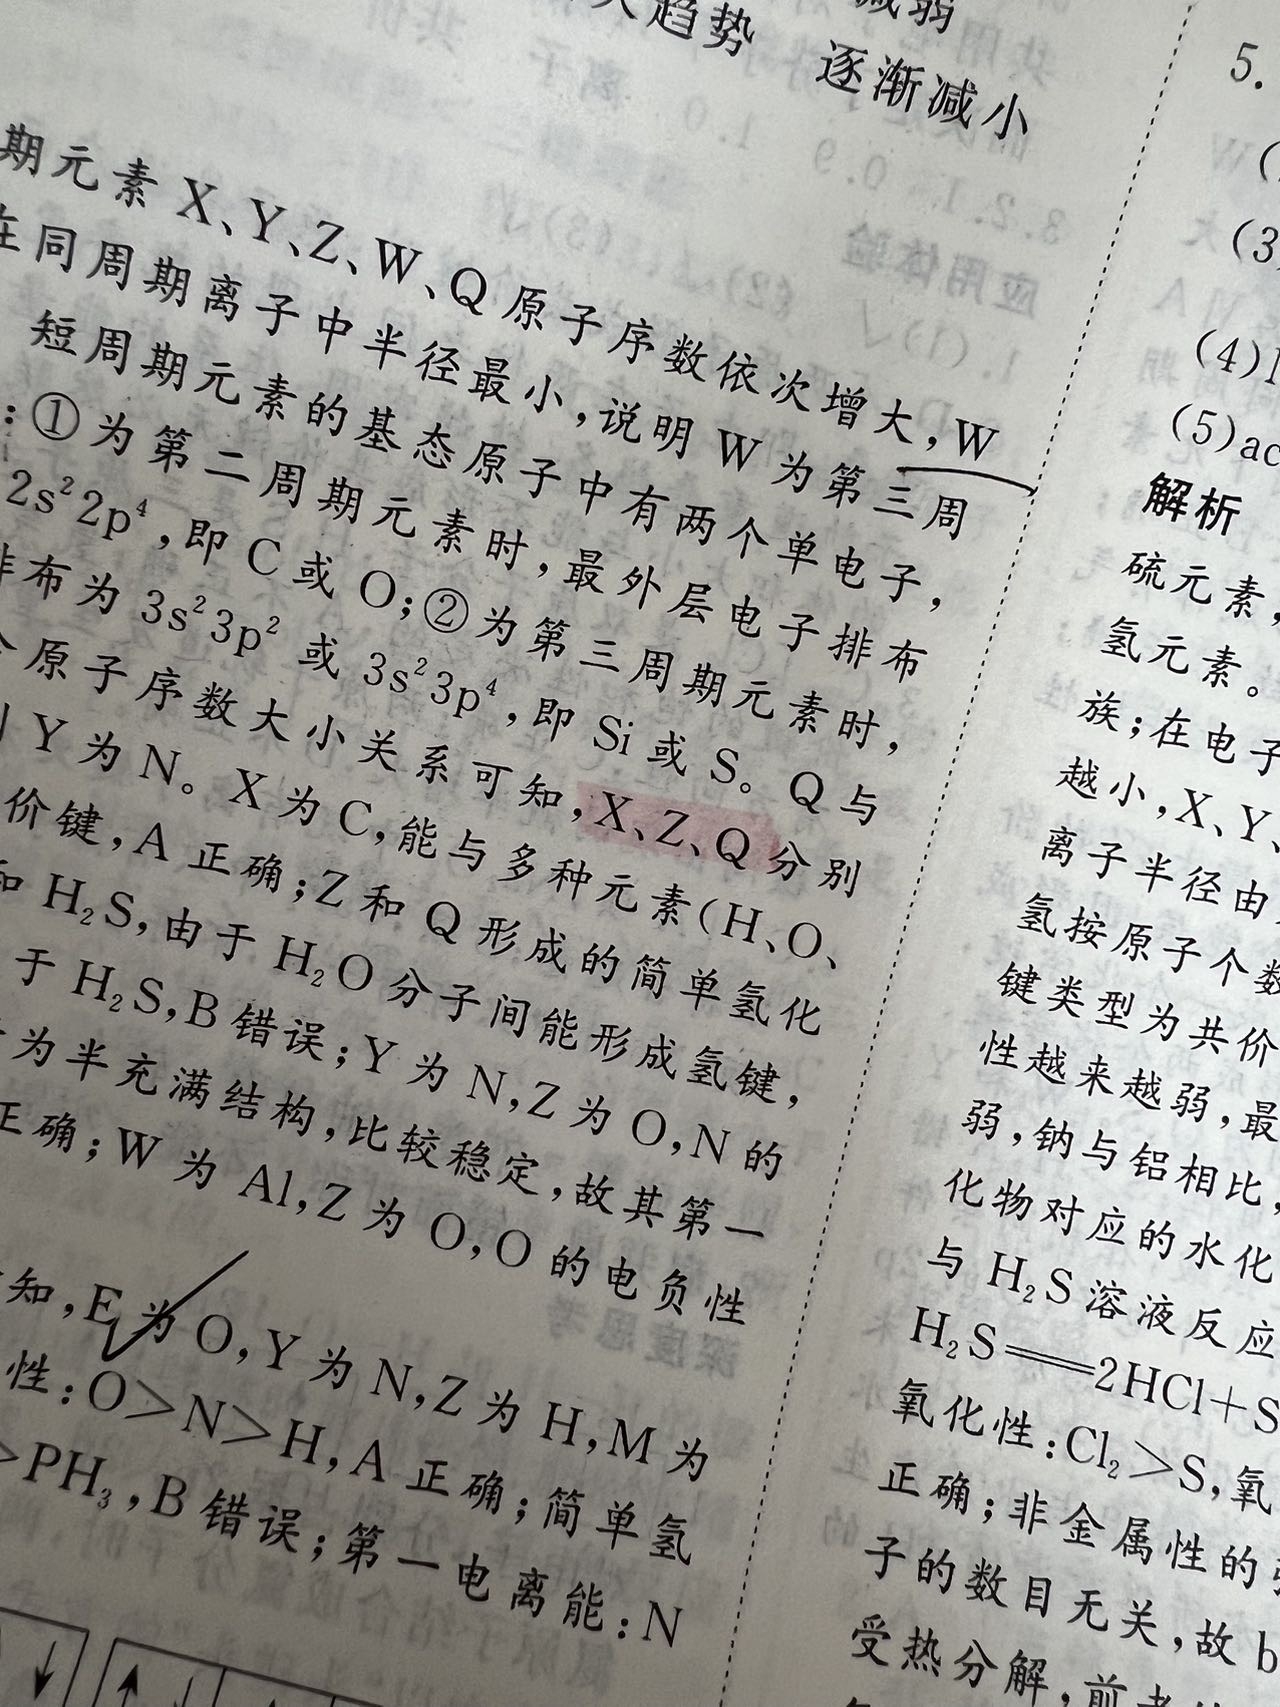 减弱
大趋势 逐渐减小
期元素 X、Y、Z、W、Q 原子序数依次增大,W
在同周期离子中半径最小,说明 W 为第三周
短周期元素的基态原子中有两个单电子,
:①为第二周期元素时,最外层电子排布
2s²2p⁴,即 C 或 O;②为第三周期元素时,
排布为 3s²3p² 或 3s²3p⁴,即 Si 或 S。Q 与
原子序数大小关系可知,X、Z、Q 分别
Y 为 N。X 为 C,能与多种元素(H、O、
价键,A 正确;Z 和 Q 形成的简单氢化
和 H₂S,由于 H₂O 分子间能形成氢键,
于 H₂S,B 错误;Y 为 N,Z 为 O,N 的
为半充满结构,比较稳定,故其第一
正确;W 为 Al,Z 为 O,O 的电负性
知,E 为 O,Y 为 N,Z 为 H,M 为
性:O>N>H,A 正确;简单氢
>PH₃,B 错误;第一电离能:N
5.
(3
(4)
(5)ac
解析
硫元素,
氢元素。
族;在电子
越小,X、Y、
离子半径由
氢按原子个数
键类型为共价
性越来越弱,最
弱,钠与铝相比,
化物对应的水化
与 H₂S 溶液反应
H₂S══2HCl+S
氧化性:Cl₂>S,氧
正确;非金属性的强
子的数目无关,故 b
受热分解,前者